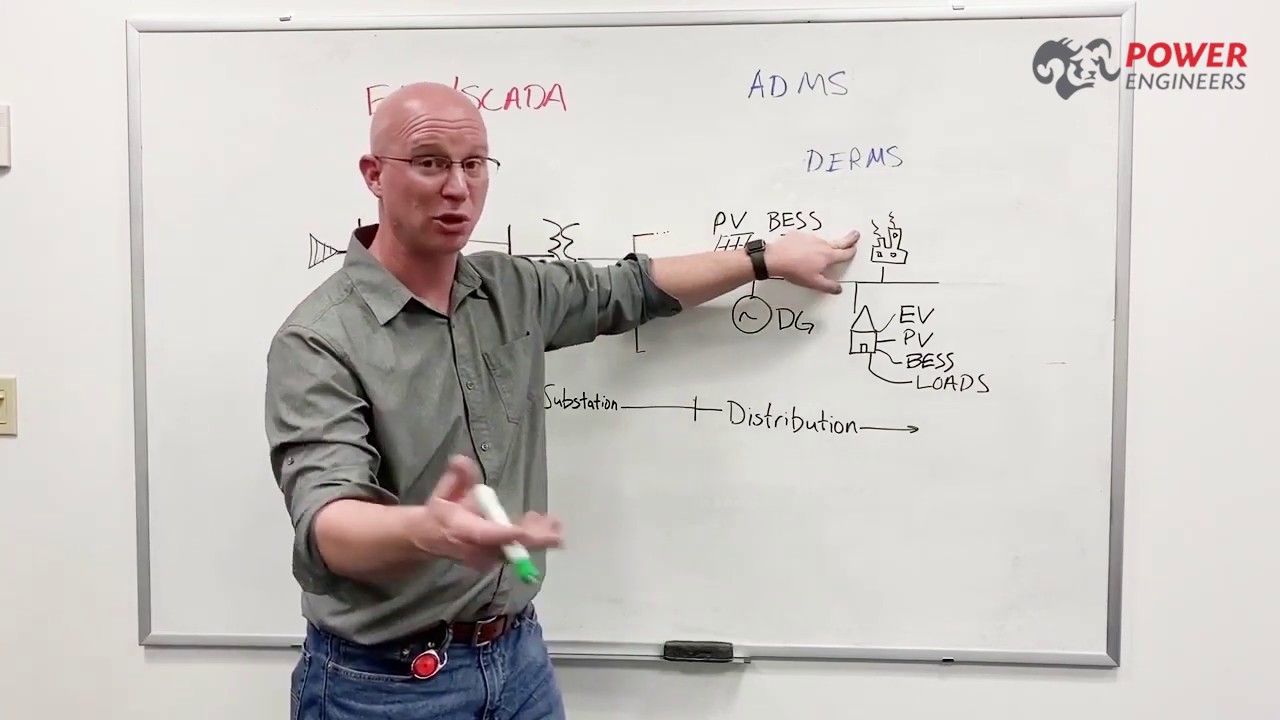 POWER
ENGINEERS
/SCADA
ADMS
DERMS
PV BESS
DG
EV
PV
BESS
LOADS
Substation
Distribution